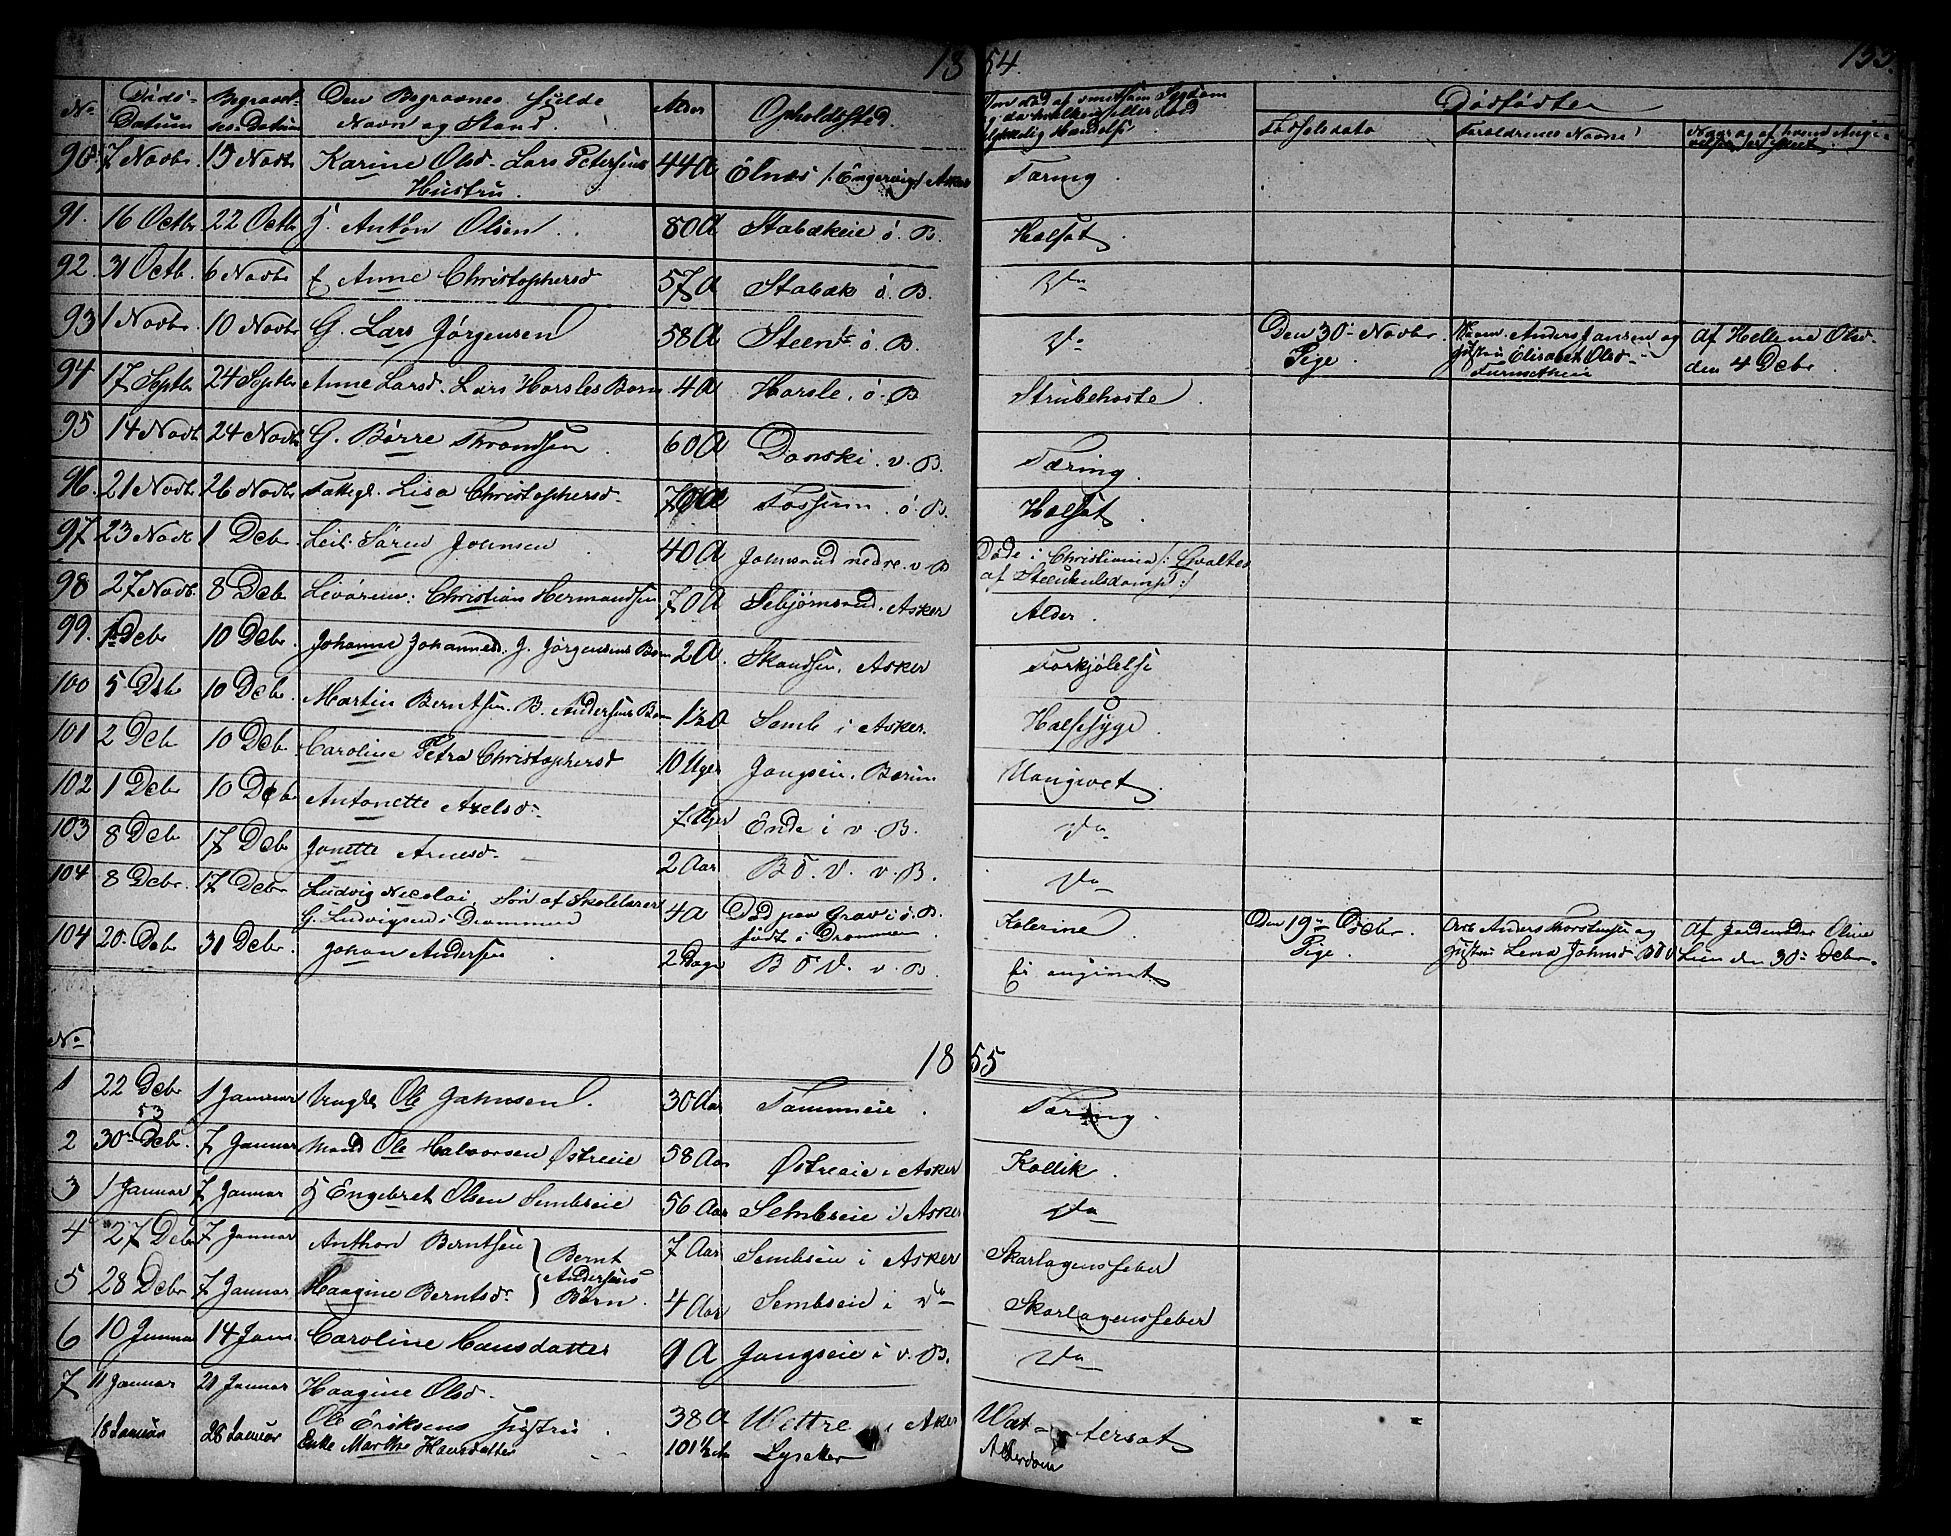 18 54. 155.
No Døds-Datum Begravelses-Datum Den Begravnes fulde Navn og Stand. Alder Opholdssted. Dødfødte
Fødselsdato Forældrenes Navne
90. 7 Novbr. 15 Novbr Karine Olsd. Lars Petersens Hustru. 44 A Ölnæs /: Engervig :/ Asker Tæring
91. 16 Octbr 22 Octbr G. Anton Olsen. 80 A Stabækeie ö. B. Halsot
92. 31 Octb. 6 Novbr Anne Christophersd 57 A Stabæk ö. B. Do
93 1 Novbr 10 Novbr G. Lars Jørgensen 58 A Steen ö. B. Do Den 30. Novbr. Pige. Anders Jansen og Hustru Elisabet Olsd. Af Hellene Olsd. den 4 Debr.
94 17 Septbr 24 Septbr Anne Larsd. Lars Horsles Barn 4 A Horsle. ö. B Strubehoste.
95 14 Novb. 24 Novb. G. Börre Throndsen 60 A Danski. v. B. Tæring
96. 21 Novbr 26 Novbr Fattigl. Lisa Christophersd. 70 A Fossum. ö. B. Halsot
97 23 Novb. 1 Deb. Leil. Sören Johnsen 40 A Johnsrud nedre. v. B Døde i Christiania /: Qvaltes af Steenkulsdamp :/
98 27 Novb. 8 Debr Christian Hermandsen 70 A Sebjörnsrud. Asker Alder.
99. 1 Debr 10 Debr. Johanne Johannesd. J. Jørgensens Barn 2 A. Skandsen. Asker Forkjölelse
100 5 Debr 10 Debr. Martin Berntsen. B. Andersens Barn 1½ A Semb i Asker. Halssyge.
101 2 Deb 10 Deb. Caroline Petra Christophersd 10 Uger Jongseie. Bærum Uangivet
102 1 Debr 10 Debr Antonette Axelsd. 7 Uger Ende i v. B. Do
103 8 Debr 17 Debr Janette Arnesd. 2 Aar B. V. v. B. Do
104 8 Debr. 17 Debr. Ludvig Nicolai, Søn af Skolelærer G. Ludvigsen i Drammen 4 A Död paa Grav i ö. B. født i Drammen. Kolerine. Den 19de Pige. Anders Thorstensen og Hustru Lena Johnsd. Af Jordemoder Oline Lien den 30. Debr.
104 20. Deb 31 Debr. Johan Andersen. 2 Dage B V. v. B. Ei angivet
No
18 55
1 22 Debr 53 1 Januar Ungk. Ole Jahnsen. 30 Aar Tæring.
2 30. Debr. 7 Januar Mand Ole Halvorsen Østreeie 58 Aar Østreeie i Asker Kolik.
3 1 Januar 7 Januar G Engebret Olsen Sembseie 56 Aar Sembseie i Asker Do
4 27 Debr 7 Januar Anthon Berntsen } Bernt 7 Aar Sembseie i Asker Skarlagensfeber
5 28 Debr 7 Januar Haagine Berntsd. } Andersens Børn. 4 Aar Sembseie i Do Skarlagensfeber
6 10 Januar 14 Jan. Caroline Hansdatter 9 A Jongseie i v. B. Do
7 11 Januar 21 Januar Haagine Olsd. Ole Eriksens Hustru. 38 A Wettre i Asker Watersot
18 Januar 28 Januar Enke Marthe Hansdatter 101½ Lysaker Alderdom